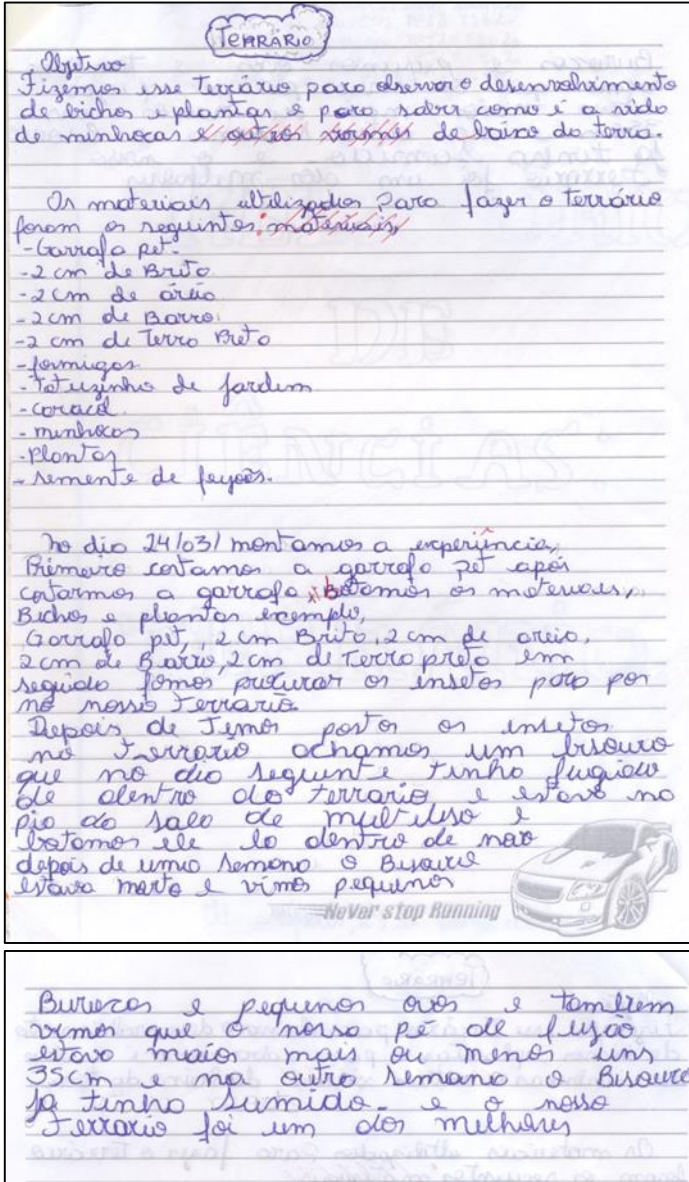 TERRÁRIO
Objtivo
Fizemos esse terrário para observar o desenvolvimento
de bichos e plantas e para saber como é a vida
de minhocas e outros vermes de baixo da terra.
Os materiais ultilizados para fazer o terrário
foram os seguintes: materiais,
-Garrafa pet.
-2 cm de Brita
-2 cm de áreia
-2cm de Barro.
-2 cm de Terra Preta
-formigas
-tatuzinho de jardim
-coracol.
-minhocas
-Plantas
-semente de feijões.
No dia 24/03/ montamos a experiência,
Primeiro cortamos a garrafa pet após
cortarmos a garrafa, Botamos os materiais,
Bichos e plantas exemplo,
Garrafa pit, 2 cm Brita, 2 cm de areia,
2cm de Barro, 2 cm de Terra preta em
seguida fomos procurar os insetos para por
no nosso Terrario
Depois de Temos postos os insetos
no Terrario achamos um bisouro
que no dia seguinte tinha fugido
de dentro do terrario e estava na
pia da sala de multiuso e
botamos ele la dentro de novo
depois de uma semana o Bisouro
estava morto e vimos pequenos
NeVer stop Running
Buracos e pequenos ovos e tambem
vimos que o nosso pé de feijão
estava maior mais ou menos uns
35cm e na outra semana o Bisouro
ja tinha sumido. e o nosso
Terrario foi um dos melhores